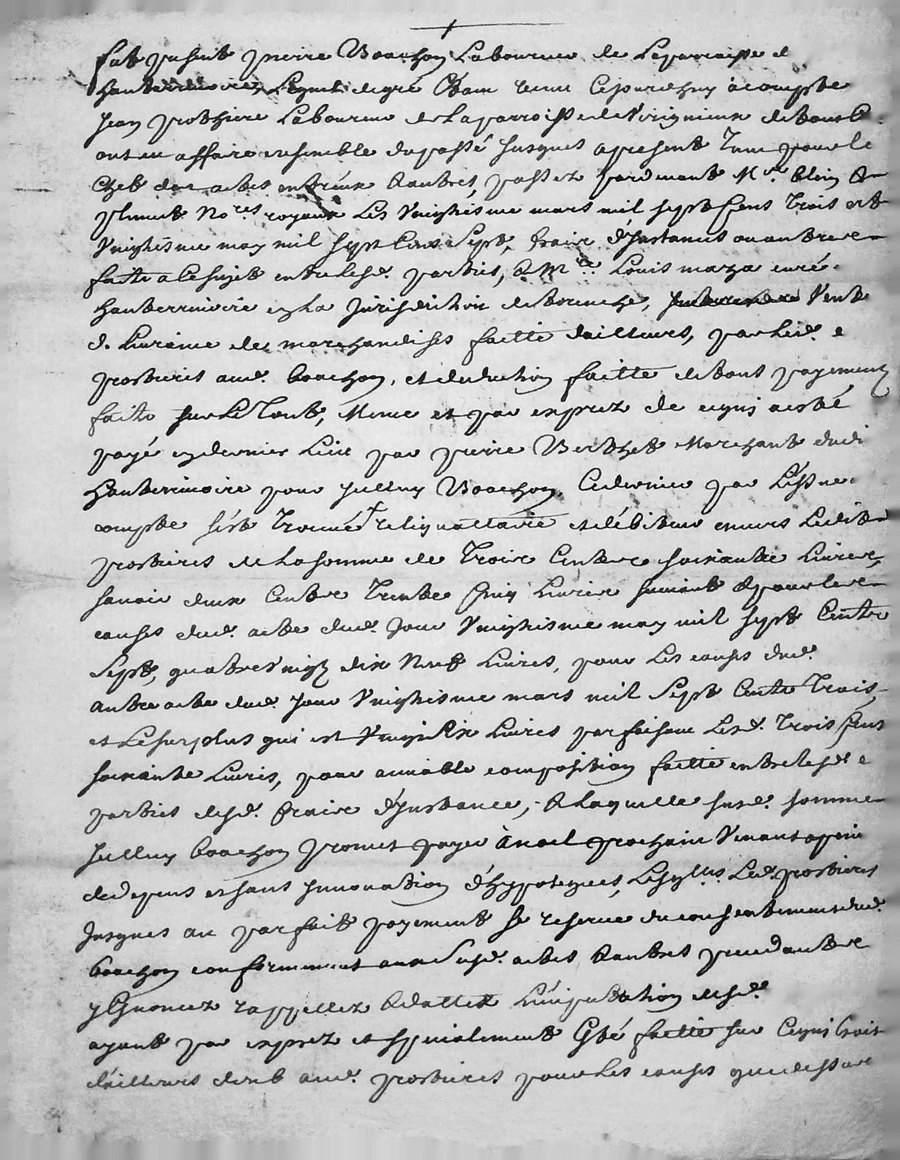 fut présent pierre Boachon Laboureur de Laparroisse d
hauterrivoire, Lequel de gré Estant venu Cejourdhuy à compte
Jean prothiere Laboureur de Laparroisse de Virignieux de tout C
ont eu affaire ensemble dupassé Jusques apresent Tant pour le
Chef des actes entr'eux &autres, passez pardevant Me.
No.res royaux Les Vingtiesme mars mil sept Cens Trois et
Vingtiesme may mil sept Cens Sept, fraix d'Instances ou autres
faits a Cesujet entre lesd. parties, & Me. Louis maza curé
hauterrivoire en La Jurisdiction de Vente
& Livraison de marchandises faitte d'ailleurs, par led.
prothieres aud. boachon, et deduction faitte de tout payement
faits sur Le Tout, Mesme et par exprez de ce qui a esté
payé en dernier Lieu par pierre Berthet Marchant dudi
hauterrivoire pour Jcelluy Boachon, Cedernier par L'issue
compte s'est Trouvé reliquattaire et débiteur envers Ledit
prothieres de La somme de Trois Centz soixante Livres,
savoir deux Centz Trente Cinq Livres suivant & pour les
causes dud. acte dud. Jour Vingtiesme may mil sept Centz
Sept, quatre Vingt dix Neuf Livres, pour Les causes dud.
autre acte dud. Jour Vingtiesme mars mil Sept Centz Trois,
et Lesurplus qui est Vingt Six Livres parfaisant Lesd. Trois Cens
soixante Livres, pour amiable composition faitte entre lesd.
parties desd. fraix d'Instance, & Laquelle susd. somme
Jcelluy boachon promet payer à noel prochain Venant apeine
de depens et sans Innovation d'hypoteques, Lesquelles Led. prothieres
Jusques au parfait payement se reserve du consentement dud.
boachon conformement aux Susd. actes &autres precedantz
y Enoncez rappellez &dattez L'imputation desd.
ayant par exprez et specialement Esté faitte sur Cequi Etoit
d'ailleurs deub aud. prothieres pour Les causes que dessus